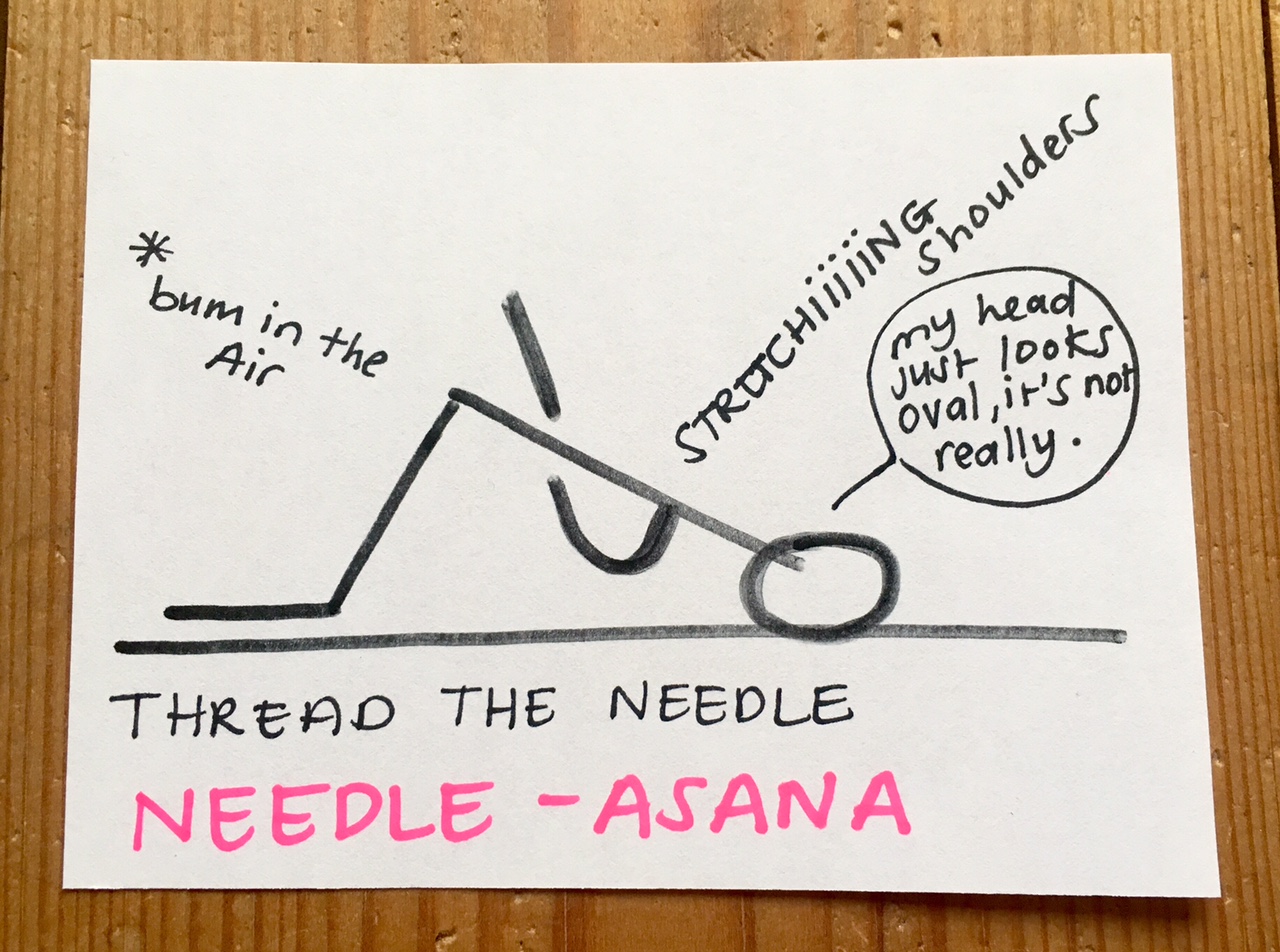 *
bum in the
Air
STRETCHiiiiiNG
shoulders
my head
just looks
oval, it's not
really.
THREAD THE NEEDLE
NEEDLE - ASANA